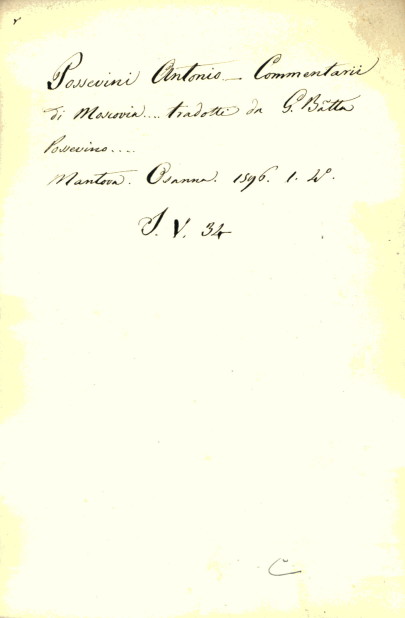 Possevini Antonio — Commentarii
di Moscovia.... tradotti da G. Bãtta
Possevino....
Mantova. Osanna. 1596. 1. 4º.
S. V. 34
C